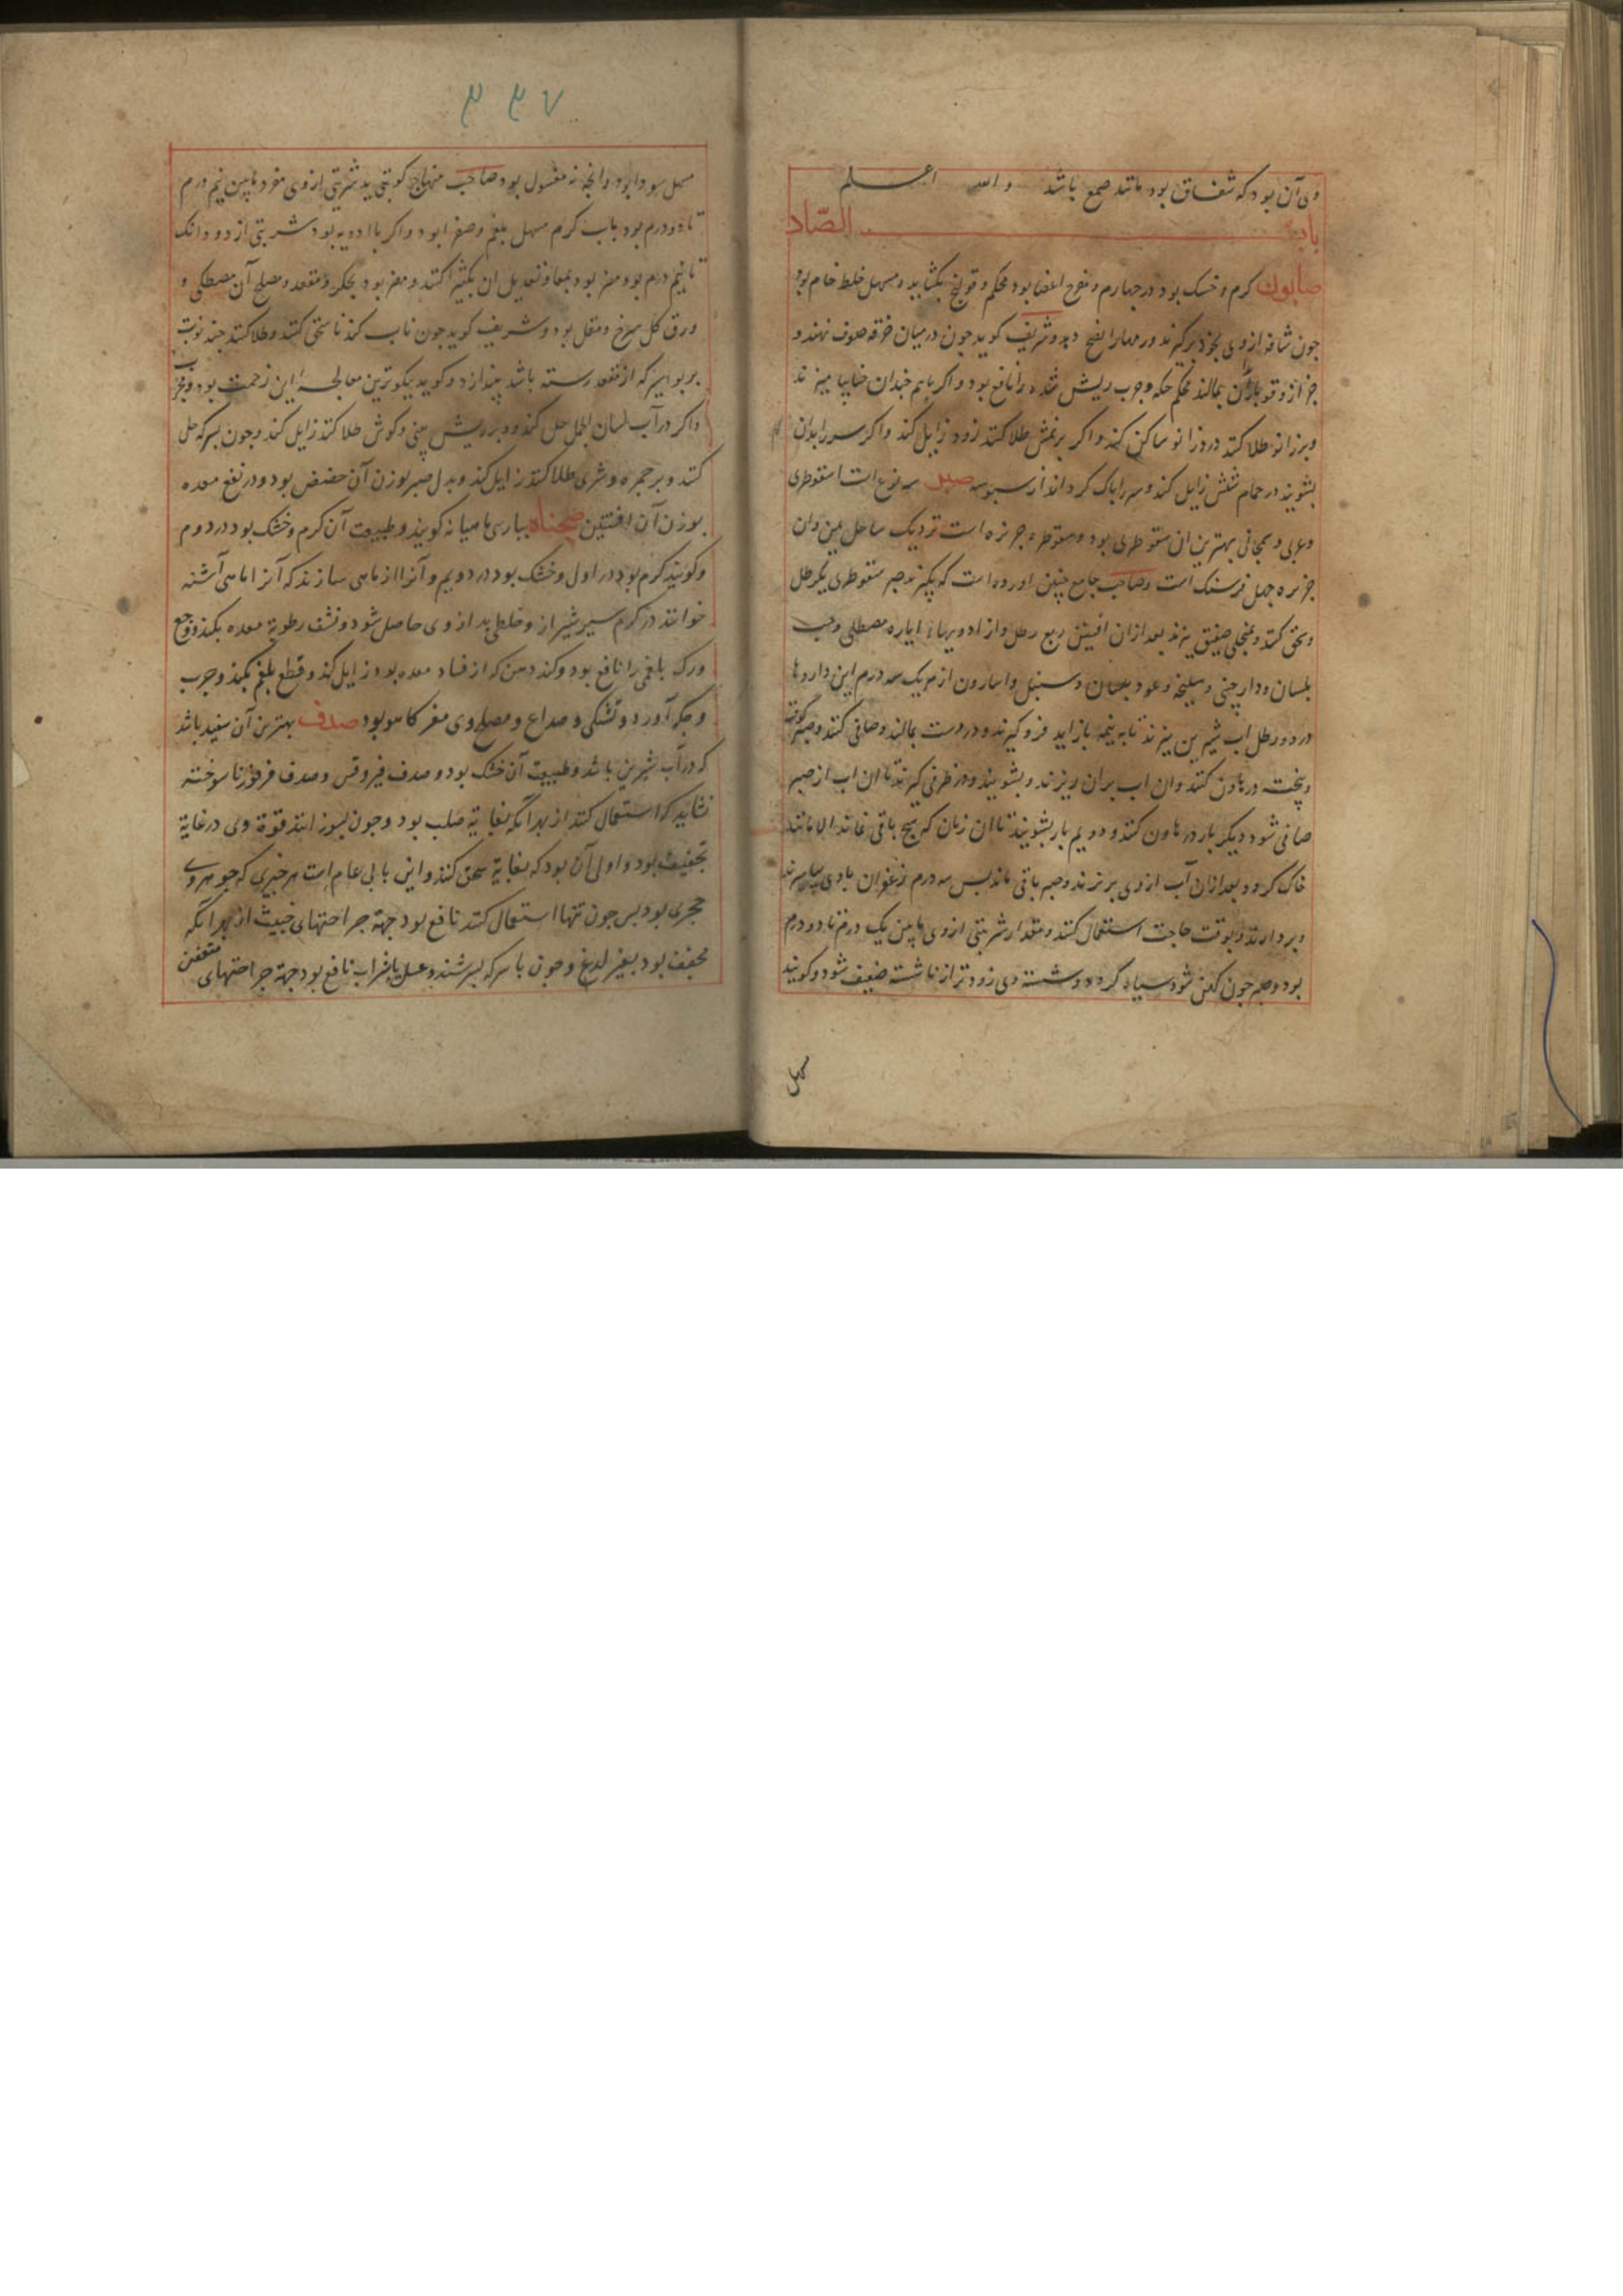 وی آن بود که شفاف بود مانند صمغ باشد و الله اعلم
باب الصّاد
صابون گرم و خشک بود در چهارم و مقرح اعضا بود محکم و قولنج بکشاید و مسهل خلط خام بود
چون شافه از وی بخود برگیرند و ورمها را نضج دهد و شریف کوید چون در میان خرقه صوف نهند و
بمالند محکم حکه و جرب ریش شده را نافع بود و اگر با هم چندان حنا بیامیزند
و بر زانو طلا کنند درد زانو ساکن کند و اگر بر نمش طلا کنند زود زایل کند و اگر سر را بدان
بشویند در حمام شپش زایل کند و سر را پاک گرداند از سبوسه صبر سه نوع است اسقوطری
و عربی و سمجانی بهترین آن سقوطری بود و سقوطره جزیره است نزدیک ساحل یمن و آن
جزیره چهل فرسنک است و صاحب جامع چنین آورده است که بگیرند صبر سقوطری یک رطل
و سحق کنند و بمنخلی صفیق بیزند بعد از آن افسنتین ربع رطل و از ادویهاء ایاره مصطکی و حب
بلسان و دارچینی و سلیخه و عود بلسان و سنبل و اسارون از هر یک سه درم این داروها
در دو رطل آب شیرین بپزند تا به نیمه باز آید فرو گیرند و در دست بمالند و صافی کنند و صبر کوفته
و بیخته در هاون کنند و آن آب بر آن ریزند و بشویند و در ظرفی گیرند تا آن آب از صبر
صافی شود دیگر بار در هاون کنند و دویم بار بشویند تا آن زمان که هیچ باقی نماند الا مانند
خاک گردد و بعد از آن آب از وی بریزند و صبر باقی ماند پس سه درم زعفران با وی بیامیزند
و بردارند و بوقت حاجت استعمال کنند و مقدار شربتی از وی مابین یک درم تا دو درم
بود و صبر چون کهن شود سیاه گردد و شسته وی زودتر از ناشسته ضعیف شود و گویند
مسهل
۳۳۷
مسهل سودا بود و آنچه نه مغسول بود صاحب منهاج گوید شربتی از وی مفرد مابین نیم درم
تا دو درم بود بآب گرم مسهل بلغم و صفرا بود و اگر با ادویه بود شربتی از دو دانک
تا نیم درم بود و مضر بود بمعا و تعدیل آن بکثیرا کنند و مضر بود بجگر و مقعد و مصلح آن مصطکی و
ورق گل سرخ و مقل بود و شریف کوید چون ناب کند تا سحق کنند و طلا کنند چند نوبت
بر بواسیر که از مقعد رسته باشد بیندازد و کوید نیکوترین معالجه این زحمت بود و مجرب
و اگر در آب لسان الحمل حل کند و بر ریش بینی و گوش طلا کنند زایل کند و چون بسرکه حل
کنند و بر حمره و شری طلا کنند زایل کند و بدل صبر بوزن آن حضض بود و در نفع معده
بوزن آن افسنتین صحناه بپارسی ماهیانه گویند و طبیعت آن گرم و خشک بود در دوم
و گویند گرم بود در اول و خشک بود در دویم و آنرا از ماهی سازند که آنرا ماهی آشنه
خوانند در گرم سیر شیراز و خلطی بد از وی حاصل شود و نشف رطوبة معده بکند و وجع
ورک بلغمی را نافع بود و کند دهن که از فساد معده بود زایل کند و قطع بلغم بکند و جرب
و حکه آورد و تشنکی و صداع و مصلح وی مغز کاهو بود صدف بهترین آن سفید باشد
که در آب شیرین باشد و طبیعت آن خشک بود و صدف فیروقس و صدف فرفورا تا سوخته
نشاید که استعمال کنند از بهر آنکه بغایة صلب بود و چون بسوزانند قوة وی در غایة
تجفیف بود و اولی آن بود که بغایة سحق کنند و این بابی عام است هر چیزی که جوهر وی
حجری بود پس چون تنها استعمال کنند نافع بود جهة جراحتهای خبیث از بهر آنکه
مجفف بود بغیر لدغ و چون با سرکه بسرشند و عسل یا شراب نافع بود جهة جراحتهای متعفن